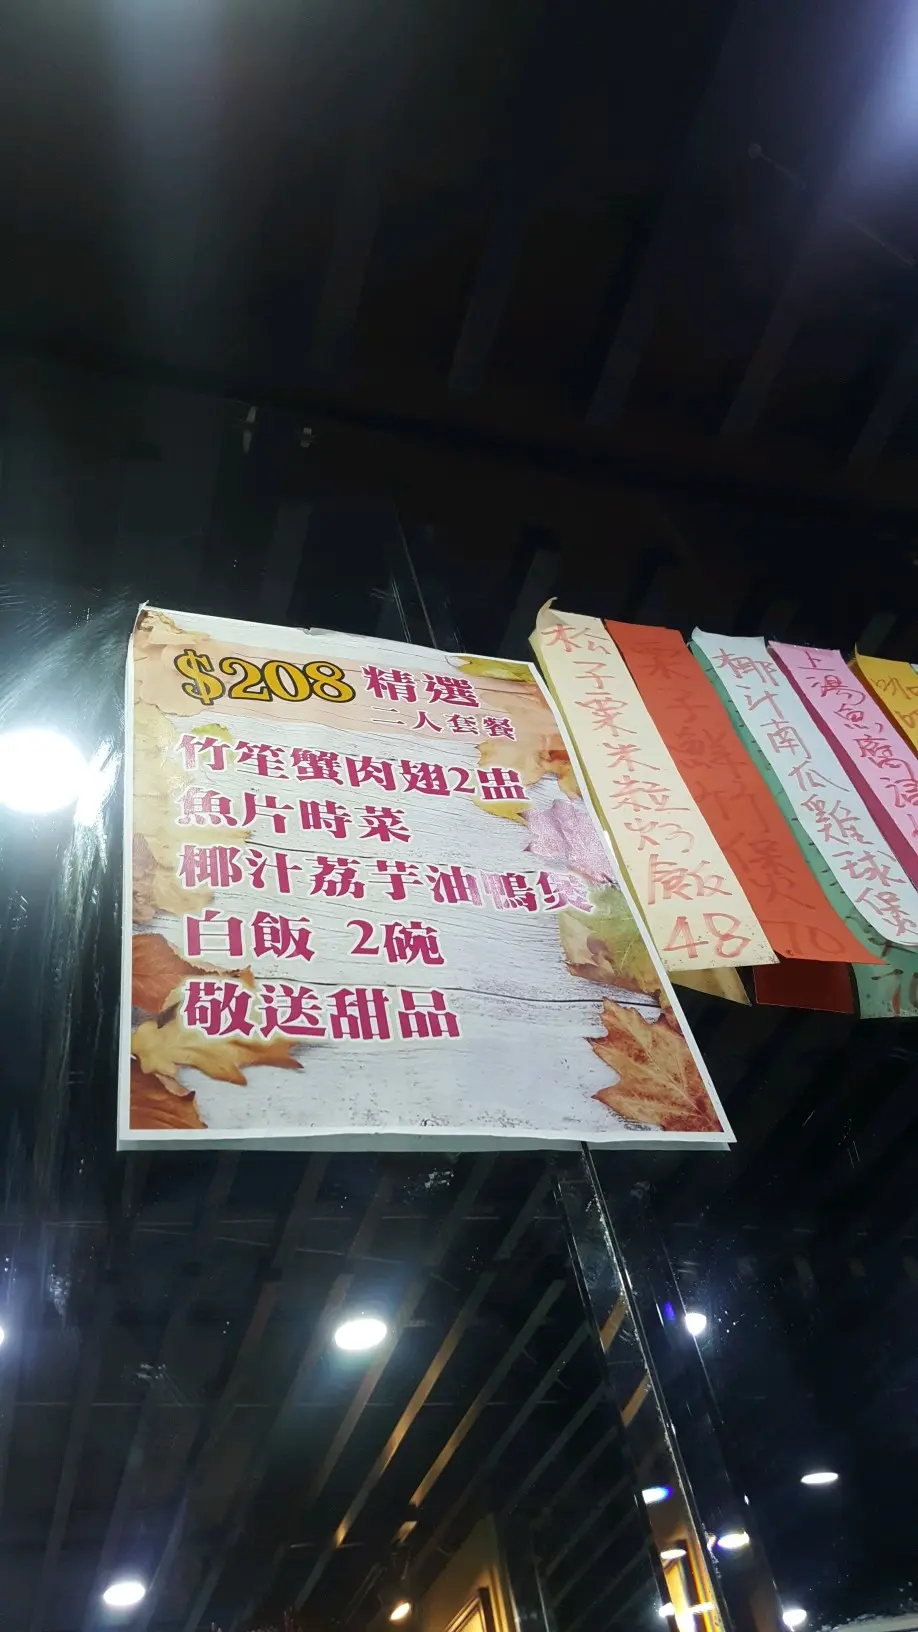 $208 精選
二人套餐
竹笙蟹肉翅2盅
魚片時菜
椰汁荔芋油鴨煲
白飯 2碗
敬送甜品
松子粟米粒炒飯 48
椰汁南瓜雞球煲
上湯魚腐